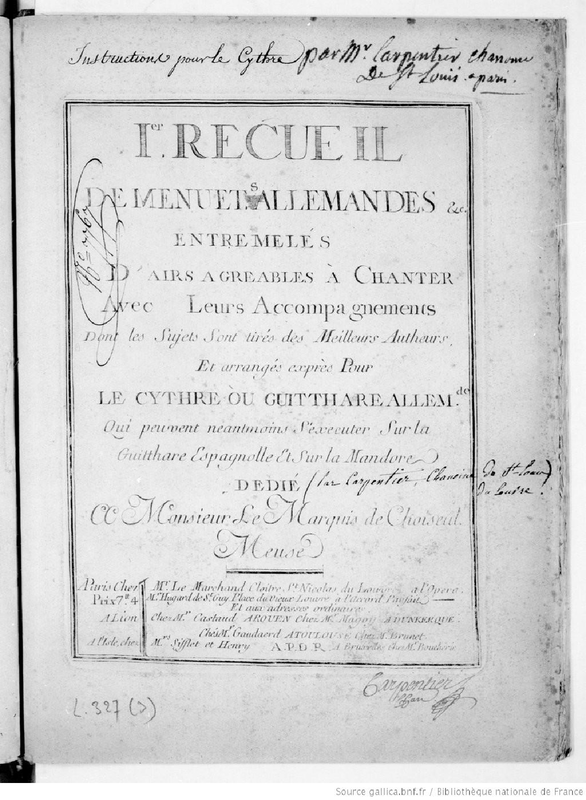 Instructions pour le Cythre par Mr. Carpentier chanoine
De St Louis a paris.
Ier. RECUEIL
DE MENUETS ALLEMANDES &c.
ENTREMELÉS
D'AIRS AGREABLES À CHANTER
Avec Leurs Accompagnements
Dont les Sujets Sont tirés des Meilleurs Autheurs,
Et arrangés exprès Pour
LE CYTHRE OÙ GUITTHARE ALLEM.de
Qui peuvent néantmoins S'executer Sur la
Guitthare Espagnolle Et Sur la Mandore
DEDIÉ (par Carpentier, Chanoine de St. Louis
du Louvre.)
A Monsieur Le Marquis de Choiseul
Meuse
A Paris Chez Mr. Le Marchand Cloître St. Nicolas du Louvre à l'Opera.
Prix 7# 4 Me. Hugard de St. Guy Place du Vieux Louvre à l'Accord Parfait
Et aux adresses ordinaires
A Lion Chez Mr. Casteaud A ROUEN Chez Mr. Magoy A DUNKERQUE.
Chés Mr. Gaudaerd A TOULOUSE Chez Mr. Brunet.
A l'Isle, chez Mrs. Sifflet et Henry A.P.D.R. A Bruxelles Chez Mr. Boucherie
Carpentier
L. 327 (3)
Source gallica.bnf.fr / Bibliothèque nationale de France